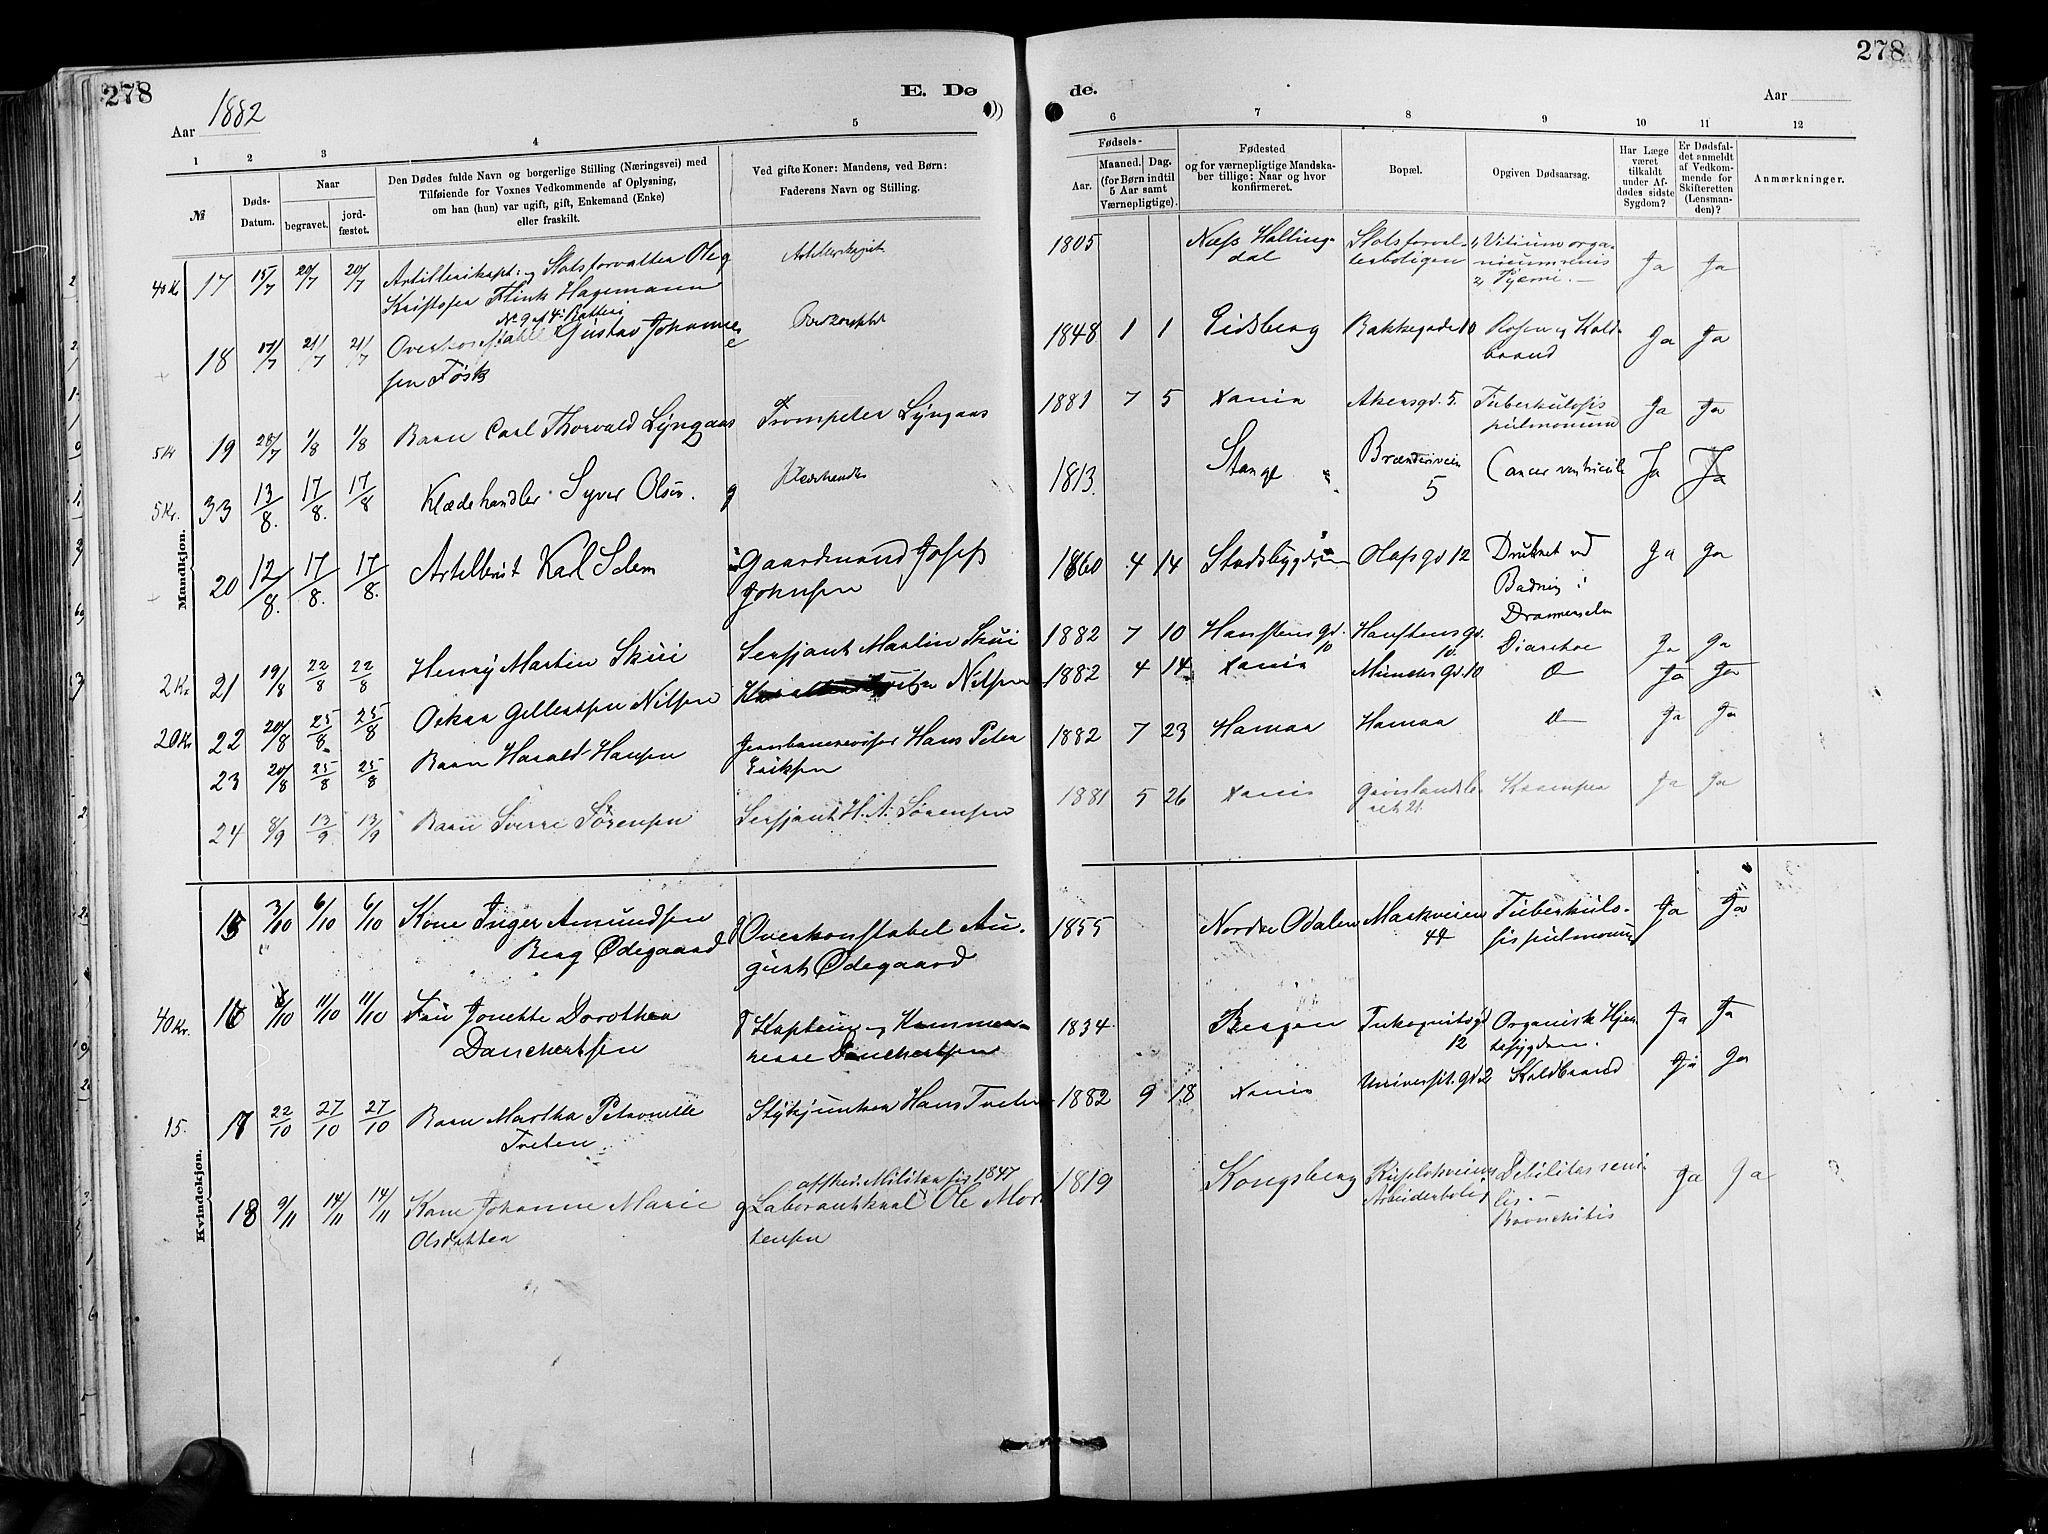 278
278
Aar 1882
E. Dø
de.
Aar
1
2
3
4
5
6
7
8
9
10
11
12
№
Døds-
Datum.
Naar
begravet.
jord-
fæstet.
Den Dødes fulde Navn og borgerlige Stilling (Næringsvei) med
Tilføiende for Voxnes Vedkommende af Oplysning,
om han (hun) var ugift, gift, Enkemand (Enke)
eller fraskilt.
Ved gifte Koner: Mandens, ved Børn:
Faderens Navn og Stilling.
Fødsels-
Aar.
Maaned.
Dag.
(for Børn indtil
5 Aar samt
Værnepligtige).
Fødested
og for værnepligtige Mandska-
ber tillige: Naar og hvor
konfirmeret.
Bopæl.
Opgiven Dødsaarsag.
Har Læge
været
tilkaldt
under Af-
dødes sidste
Sygdom?
Er Dødsfal-
det anmeldt
af Vedkom-
mende for
Skifteretten
(Lensman-
den)?
Anmærkninger.
Mandkjøn.
40 Kr 17 15/7 20/7 20/7 Artillerikapt: og Slotsforvalter Ole g
Kristofer Flink Hagemann
1805 Næss Halling-
dal
Slotsforval-
terboligen
1, Vitium orga-
nicum renis
2, Pyæmi. —
Ja Ja
No 9 af 4. Batteri
18 17/7 21/7 21/7 Overkonstabel Gustav Johanne
sen Fosk
1848 1 1 Eidsberg Bakkegade 10 Rosen og Kold-
brand
Ja Ja
5 kr 19 28/7 1/8 1/8 Barn Carl Thorvald Lyngaas Trompeter Lyngaas
1881 7 5 Xania Akersgd. 5. Tuberkulosis
pulmonum
Ja Ja
5 Kr. 33 13/8. 17/8. 17/8 Klædehandler Syver Olsen. g
1813. Stange Brænderiveien
5
Cancer ventricule Ja Ja
20 12/8. 17/8. 17/8. Artillerist Karl Solem Gaardmand Josefs
Johnsen
1860 4 14 Stadsbygden Olafsgd 12 Druknet ved
Badning i
Drammenselv
Ja Ja
2 Kr 21 19/8 22/8 22/8 Henry Martin Skui Serjant Martin Skui
1882 7 10 Hanstensgd.
10
Hanstensgd.
10.
Diarrhoe Ja Ja
20 Kr 22 20/8 25/8. 25/8 Oskar Gellertsen Nilsen Nilsen
1882 4 14 Xania Munchs Gd. 10 Ja Ja
23 20/8 25/8 25/8 Barn Harald Hansen Jernbanerevisor Hans Peter
Eriksen
1882 7 23 Hamar Hamar Ja Ja
24 8/9 13/9 13/9 Barn Sverre Sørensen Serjant H. A. Sørensen
1881 5 26 Xania Grønlandsle-
ret 21.
Krampe Ja Ja
Kvindekjøn.
15 3/10 6/10 6/10 Kone Inger Amundsen
Berg Ødegaard
g Overkonstabel Au-
gust Ødegaard
1855 Nordre Odalen Markveien
44
Tuberkulo-
sis pulmonum
Ja Ja
40 Kr. 16 6/10 11/10 11/10 Fru Jonette Dorothea
Danchertsen
g Kaptein og Kammer-
herre Danchertsen
1834 Bergen Inkognitogd
12
Organisk Hjer-
tesygdom.
Ja Ja
15. 17 22/10 27/10 27/10 Barn Martha Petronelle
Tveten
Stykjunker Hans Tveten
1882 9 18 Xania Universit. gd. 2 Koldbrand Ja Ja
18 9/11 14/11 14/11 Kone Johanne Marie
Olsdatter
g Laborantkarl Ole Mor
tensen
1819 Kongsberg
Arbeiderbolig
Debilitas seni-
lis. —
Bronchitis
Ja Ja